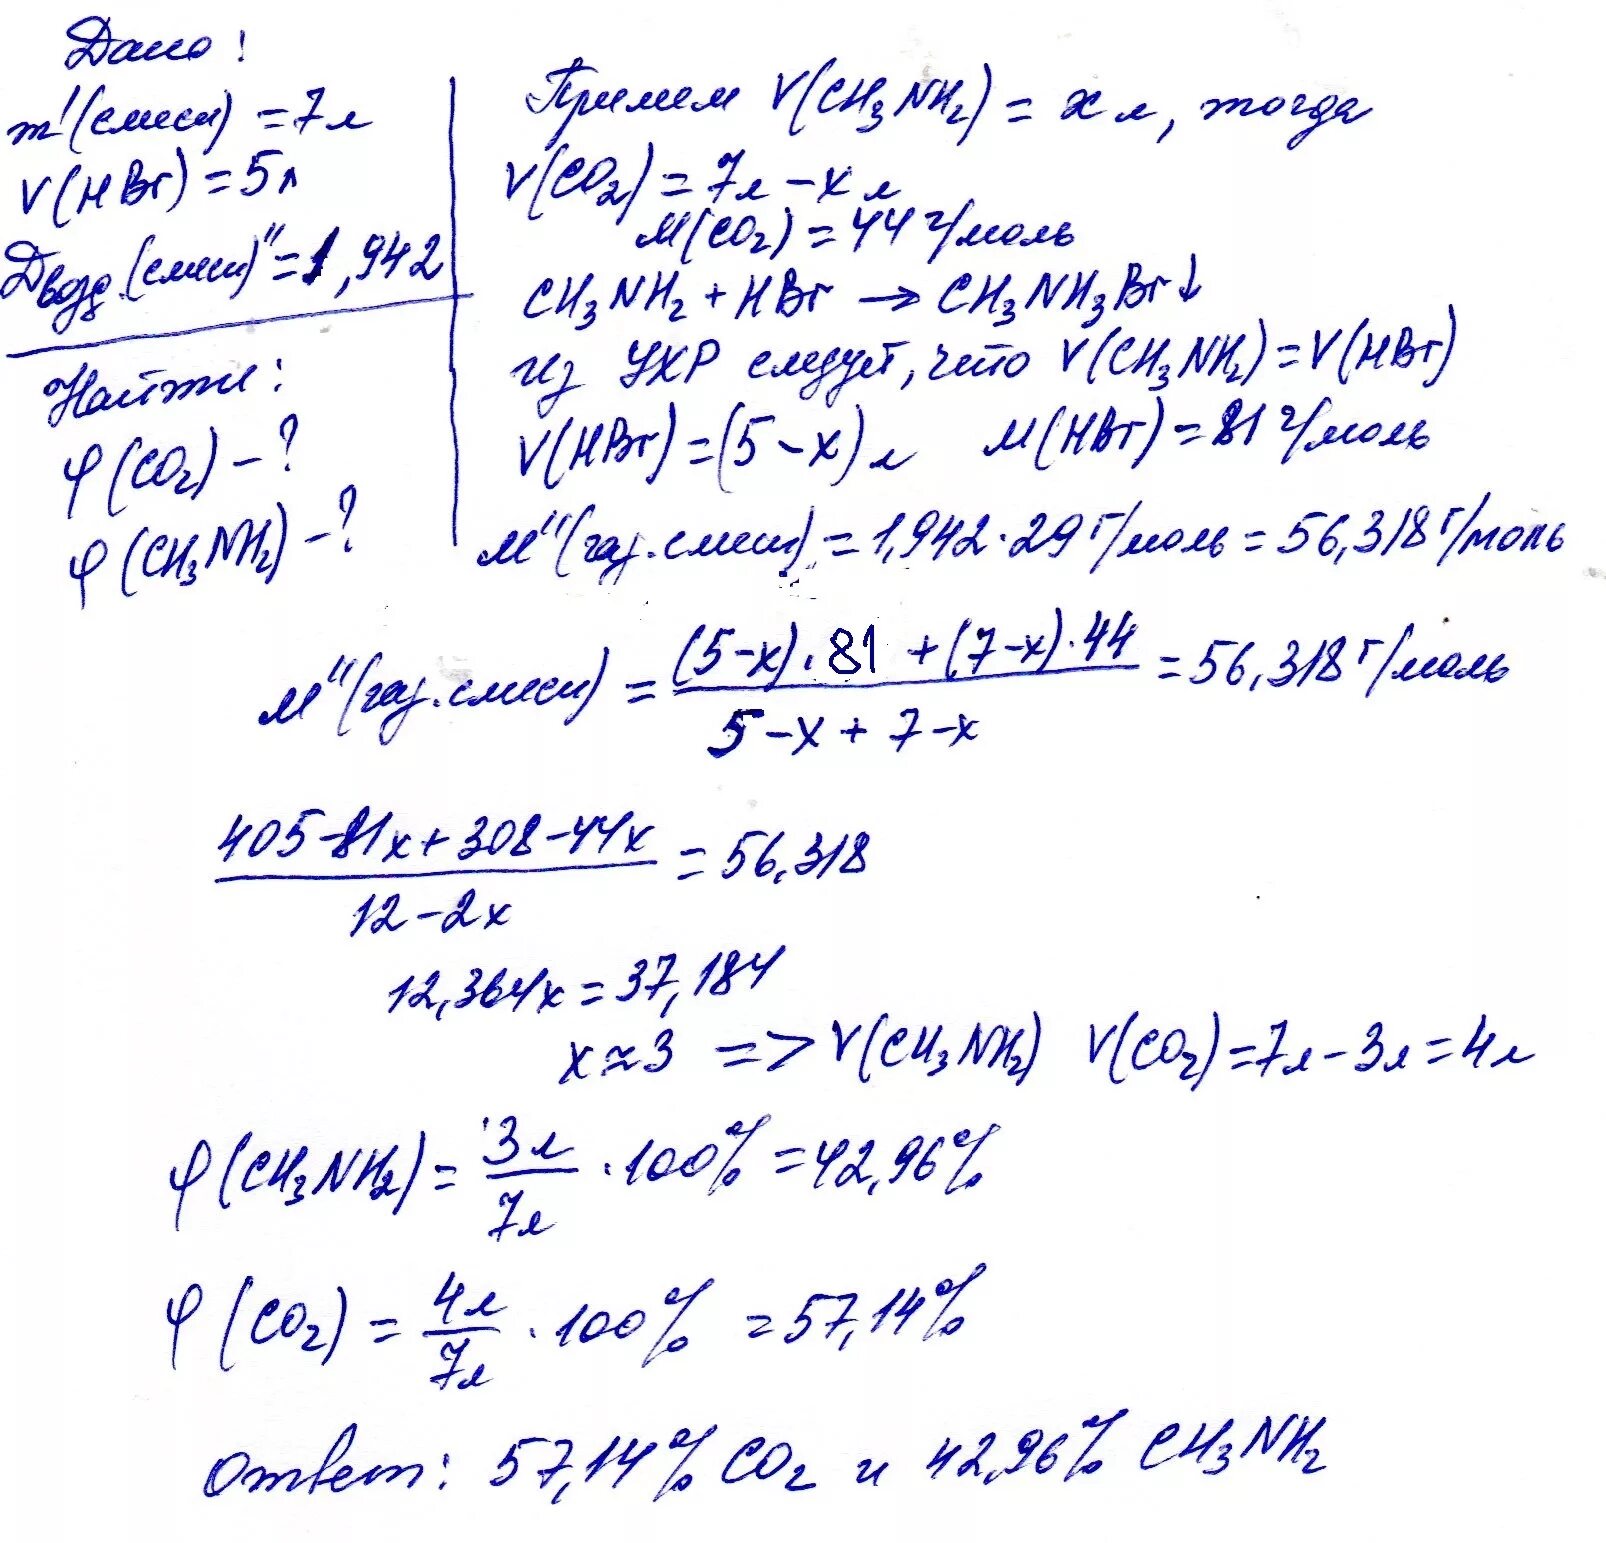 Дано:
m'(смеси) = 7 л
V(HBr) = 5 л
Dвозд.(смеси)" = 1,942
Найти:
φ(CO₂) – ?
φ(CH₃NH₂) – ?
Примем V(CH₃NH₂) = x л, тогда
V(CO₂) = 7л – x л
M(CO₂) = 44 г/моль
CH₃NH₂ + HBr → CH₃NH₃Br↓
из УХР следует, что V(CH₃NH₂) = V(HBr)
V(HBr) = (5 – x) л M(HBr) = 81 г/моль
M"(газ. смеси) = 1,942·29 г/моль = 56,318 г/моль
M"(газ. смеси) = (5–x)·81 + (7–x)·44 / 5–x + 7–x = 56,318 г/моль
405–81x+308–44x / 12–2x = 56,318
12,364x = 37,184
x ≈ 3 => V(CH₃NH₂) V(CO₂) = 7л – 3л = 4л
φ(CH₃NH₂) = 3л / 7л · 100% = 42,96%
φ(CO₂) = 4л / 7л · 100% = 57,14%
Ответ: 57,14% CO₂ и 42,96% CH₃NH₂